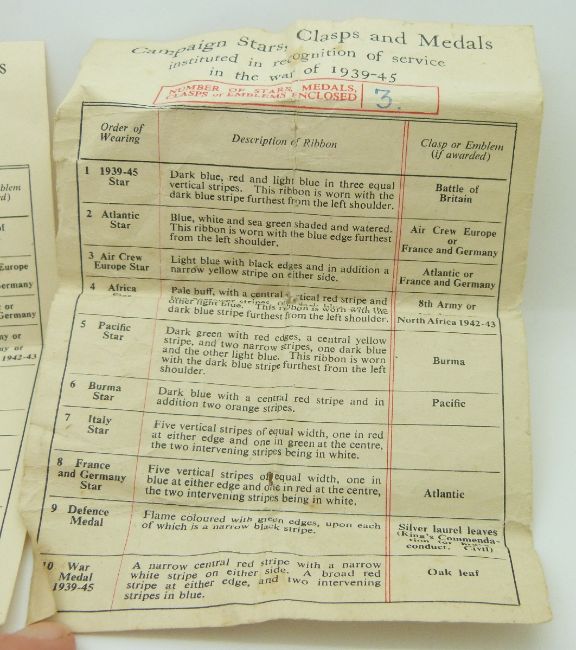 Campaign Stars, Clasps and Medals
instituted in recognition of service
in the war of 1939-45
NUMBER OF STARS, MEDALS,
CLASPS or EMBLEMS ENCLOSED
3.
Order of
Wearing
Description of Ribbon
Clasp or Emblem
(if awarded)
1 1939-45
Star
Dark blue, red and light blue in three equal
vertical stripes. This ribbon is worn with the
dark blue stripe furthest from the left shoulder.
Battle of
Britain
2 Atlantic
Star
Blue, white and sea green shaded and watered.
This ribbon is worn with the blue edge furthest
from the left shoulder.
Air Crew Europe
or
France and Germany
3 Air Crew
Europe Star
Light blue with black edges and in addition a
narrow yellow stripe on either side.
Atlantic or
France and Germany
4 Africa
Star
Pale buff, with a central vertical red stripe and
other light blue. This ribbon is worn with the
dark blue stripe furthest from the left shoulder.
8th Army or
North Africa 1942-43
5 Pacific
Star
Dark green with red edges, a central yellow
stripe, and two narrow stripes, one dark blue
and the other light blue. This ribbon is worn
with the dark blue stripe furthest from the left
shoulder.
Burma
6 Burma
Star
Dark blue with a central red stripe and in
addition two orange stripes.
Pacific
7 Italy
Star
Five vertical stripes of equal width, one in red
at either edge and one in green at the centre,
the two intervening stripes being in white.
8 France
and Germany
Star
Five vertical stripes of equal width, one in
blue at either edge and one in red at the centre,
the two intervening stripes being in white.
Atlantic
9 Defence
Medal
Flame coloured with green edges, upon each
of which is a narrow black stripe.
Silver laurel leaves
(King's Commenda-
tion for brave
conduct. Civil)
10 War
Medal
1939-45
A narrow central red stripe with a narrow
white stripe on either side. A broad red
stripe at either edge, and two intervening
stripes in blue.
Oak leaf